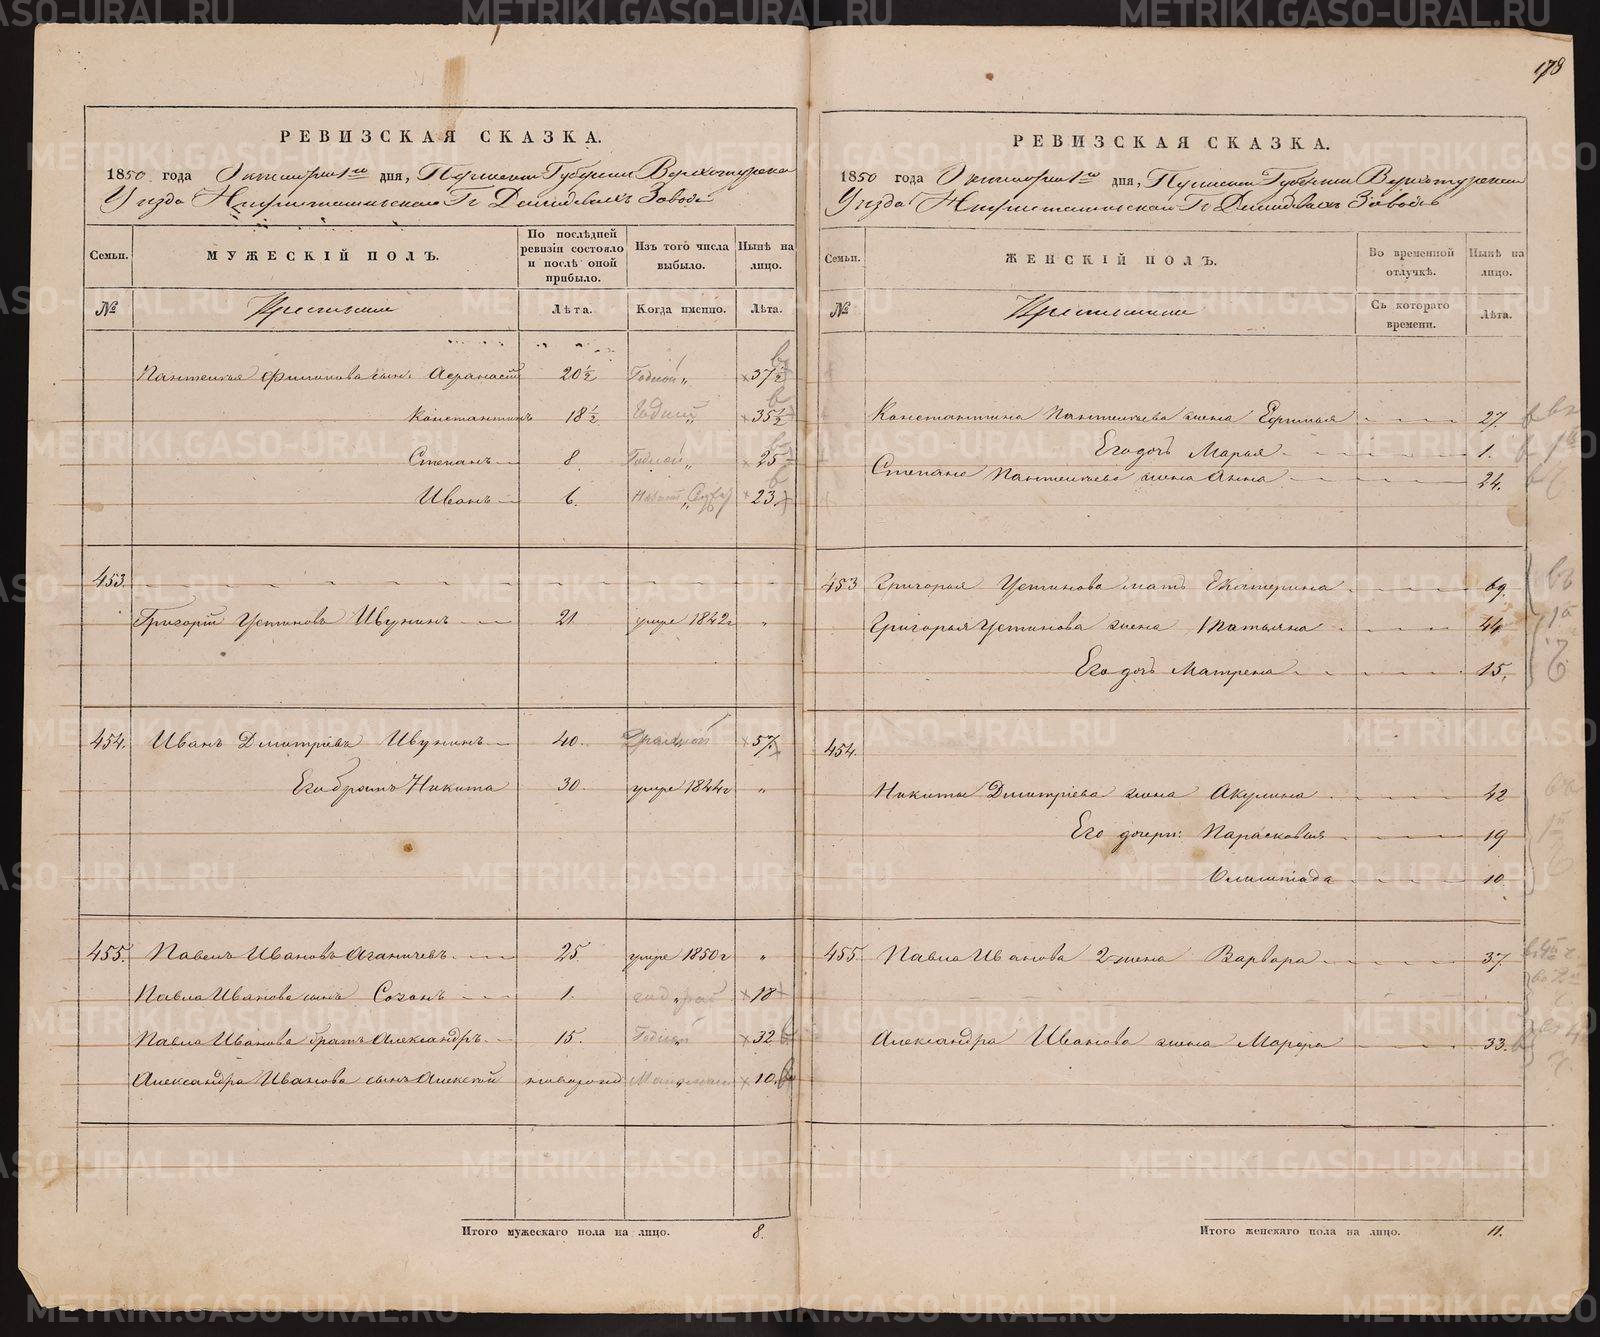 178
РЕВИЗСКАЯ СКАЗКА.
1850 года Октября 1го дня, Пермской Губернии Верхотурскаго
Уезда Нижнетагильскаго Гг Демидовыхъ Завода
Семьи.
МУЖЕСКІЙ ПОЛЪ.
По послѣдней ревизіи состояло и послѣ оной прибыло.
Изъ того числа выбыло.
Нынѣ на лицо.
№
Крестьяне
Лѣта.
Когда именно.
Лѣта.
Пантелея Филипова сынъ Афанасій 20½ Годной 37½
Константинъ 18½ Годной 35½
Степанъ 8. Годной 25
Иванъ 6. 23
453.
Григорій Устиновъ Ивунинъ 21. умре 1842г "
454. Иванъ Дмитріевъ Ивунинъ 40. 57.
Его братъ Никита 30. умре 1844г "
455. Павелъ Ивановъ Аганичевъ 25. умре 1850г "
Павла Иванова сынъ Созонъ 1. 18
Павла Иванова братъ Александръ 15. Годной 32
Александра Иванова сынъ Алексей новорожд 10.
Итого мужескаго пола на лицо. 8.
РЕВИЗСКАЯ СКАЗКА.
1850 года Октября 1го дня, Пермской Губернии Верхотурскаго
Уезда Нижнетагильскаго Гг Демидовыхъ Заводъ
Семьи.
ЖЕНСКІЙ ПОЛЪ.
Во временной отлучкѣ.
Нынѣ на лицо.
№
Крестьяне
Съ котораго времени.
Лѣта.
Константина Пантелеева жена Ефимья 27.
Его дочь Марья 1.
Степана Пантелеева жена Анна 24.
453 Григорья Устинова мать Екатерина 69.
Григорья Устинова жена Татьяна 44
Его дочь Матрена 15.
454.
Никиты Дмитріева жена Акулина 42
Его дочери: Парасковья 19
Олимпіада 10
455 Павла Иванова 2 жена Варвара 37.
Александра Иванова жена Марфа 33.
Итого женскаго пола на лицо. 11.
METRIKI.GASO-URAL.RU